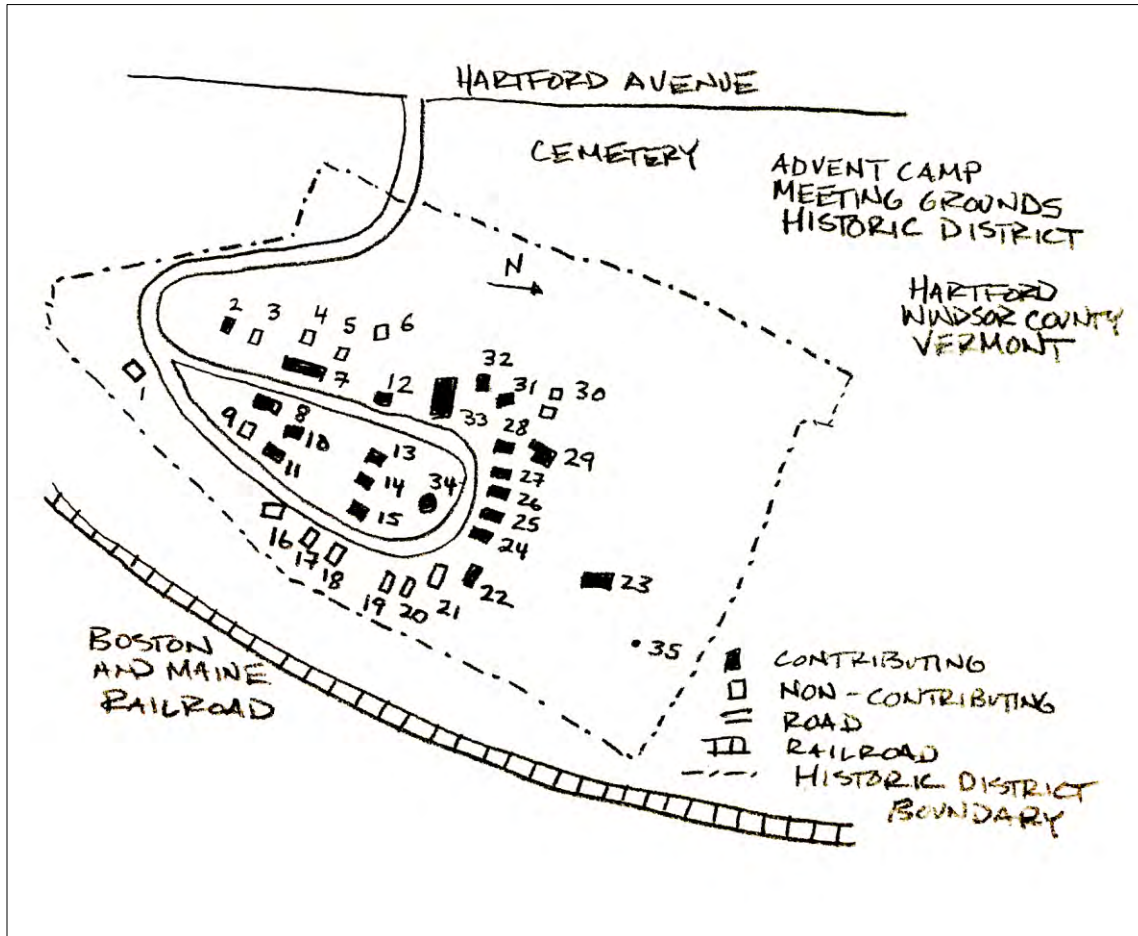 HARTFORD AVENUE
CEMETERY
ADVENT CAMP
MEETING GROUNDS
HISTORIC DISTRICT
N
HARTFORD
WINDSOR COUNTY
VERMONT
2
3
4
5
6
7
32
31
30
12
33
1
8
9
10
28
29
11
13
27
14
34
26
15
25
16
24
17
18
19
20
21
22
23
35
BOSTON
AND MAINE
RAILROAD
CONTRIBUTING
NON-CONTRIBUTING
ROAD
RAILROAD
HISTORIC DISTRICT
BOUNDARY